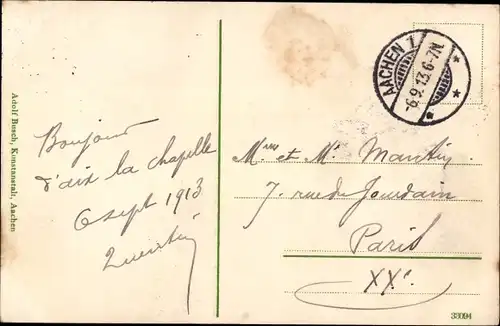 Adolf Busch, Kunstanstalt, Aachen
Bonjour
d'aix la chapelle
6 sept 1913
Quentin
AACHEN 1
-6.9.13.6-7N.
Mme et Mr
7. rue du Jourdain
Paris
XXe.
33094